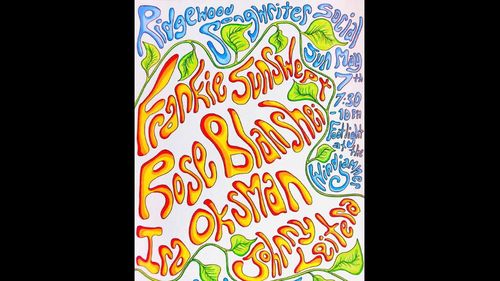 Ridgewood
Songwriter
Social
Sun May
7th
7:30
-10PM
Footlight
at the
Windjammer
Frankie Sunswept
Rose Blanshei
Ira Oksman
Johnny
Leitera